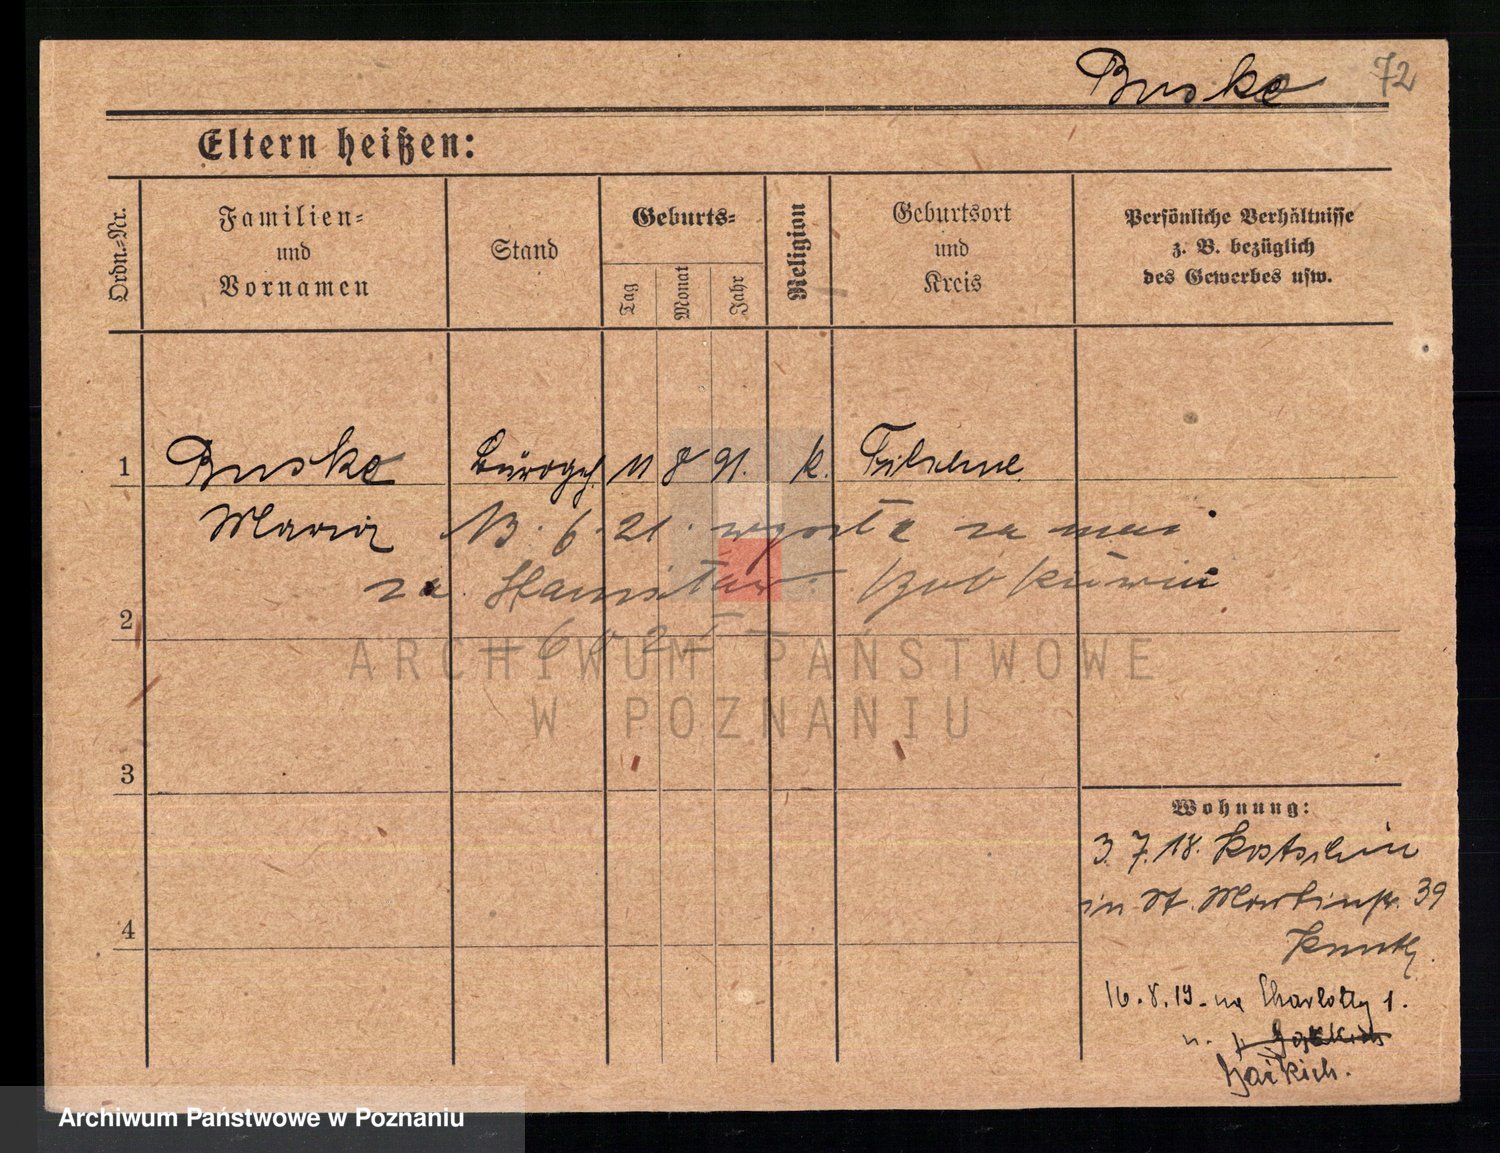 Buske 72
Eltern heißen:
Ordn.-Nr.
Familien-
und
Vornamen
Stand
Geburts-
Tag
Monat
Jahr
Religion
Geburtsort
und
Kreis
Persönliche Verhältnisse
z. B. bezüglich
des Gewerbes usw.
1 Buske Bürogeh. 11 8 91. k. Filehne
Maria 13. 6. 21. wyszła za mąż
za Stanisław
2
602
ARCHIWUM PAŃSTWOWE
W POZNANIU
3
Wohnung:
3. 7. 18. Kostschin
in St. Martinstr. 39
4
16. 8. 19. na Charlotty 1.
u.
Archiwum Państwowe w Poznaniu